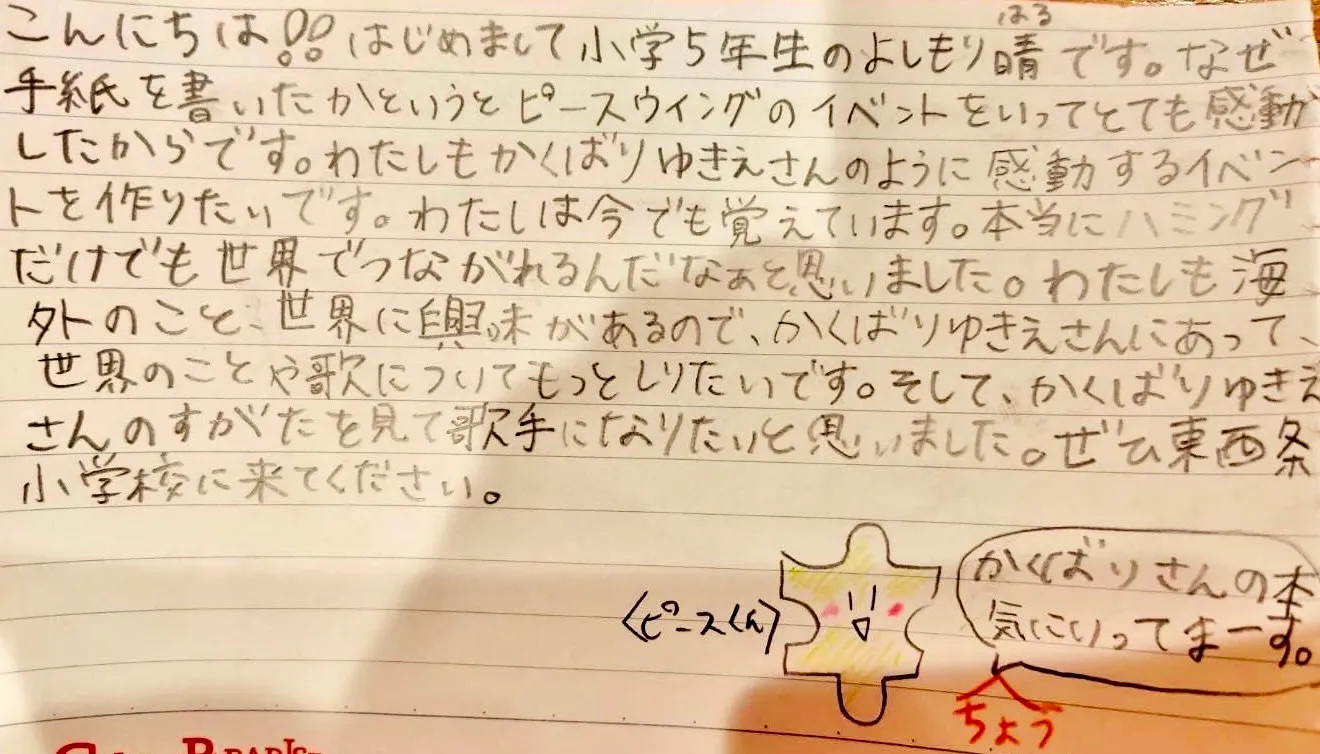 はる
こんにちは!!はじめまして小学5年生のよしもり晴です。なぜ
手紙を書いたかというとピースウイングのイベントをいってとても感動
したからです。わたしもかくばりゆきえさんのように感動するイベン
トを作りたいです。わたしは今でも覚えています。本当にハミング
だけでも世界でつながれるんだなぁと思いました。わたしも海
外のこと、世界に興味があるので、かくばりゆきえさんにあって、
世界のことや歌についてもっとしりたいです。そして、かくばりゆきえ
さんのすがたを見て歌手になりたいと思いました。ぜひ東西条
小学校に来てください。
かくばりさんの本
気にいってまーす。
ちょう
〈ピースくん〉